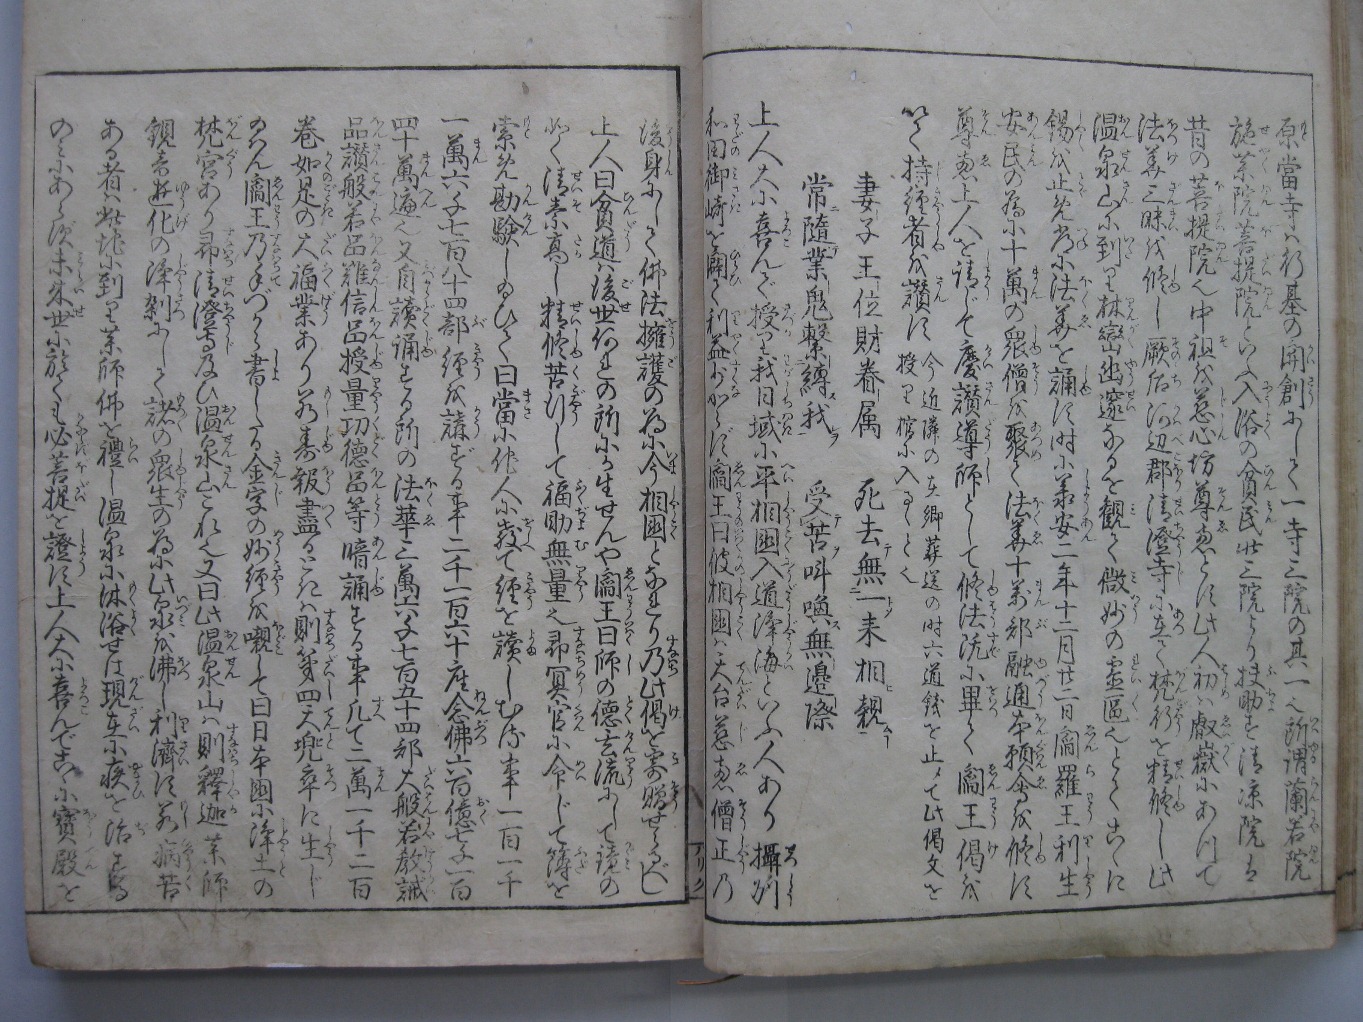 原當寺ハ行基の開創にして一寺三院の其一也所謂蘭若院
施薬院菩提院といふ入浴の貧民此三院より扶助す清凉院は
昔の菩提院也中祖を慈心坊尊恵とす此人初ハ叡嶽にあつて
法華三昧を修し厥后河辺郡清澄寺に在て梵行を精修し此
温泉山に到り林巒幽邃なるを観て微妙の霊區也とてこゝに
錫を止め常に法華を誦す時に承安二年十二月廿二日閻羅王利生
安民の為に十萬の衆僧を聚て法華十萬部融通本願會を修す
尊恵上人を請じて慶讃導師として修法既に畢て閻王偈を
以て持經者を讃す 今近隣の在郷葬送の时六道錢を止めて此偈文を
授り棺に入るゝと也
妻子王位財眷属 死去無一来相親
常隨業鬼繋縛我 受苦叫喚無邊際
上人大に喜んで授り我日域に平相國入道浄海といふ人あり攝州
和田御崎を闢て利益少からず閻王曰彼相國ハ天台慈恵僧正乃
後身にして佛法擁護の為に今相國となれり乃此偈を寄贈せるべし
上人曰貧道ハ後世何れの所にか生せんや閻王曰師の德玄流にして鏡の
如く清素高し精修苦行して福助無量也即冥官に命じて簿を
索め勘験しゐひて曰當に作人に教て經を讀しむる事一百一千
一萬六千七百八十四部經を講ずる事二千一百六十座念佛六百億七千一百
四十萬遍也又自讀誦する所の法華三萬六千七百五十四部大般若教誡
品讃般若品難信品授量功德品等暗誦する事凡て二萬一千二百
巻如是の大福業あり若壽報盡るときハ則第四天兜率に生じ
なん閻王乃手づから書したる金字の妙經を嚫して曰日本國に浄土の
梵宮あり即清澄寺及び温泉山これ也又曰此温泉山ハ則釋迦薬師
観音遊化の浄刹にして諸の衆生の為に此泉を沸し利濟す若病苦
ある者ハ此地に到り薬師佛を禮し温泉に沐浴せは現在に疾を治する
のミにあらず未来世に於ても必菩提を證す上人大に喜んでこゝに寶殿を